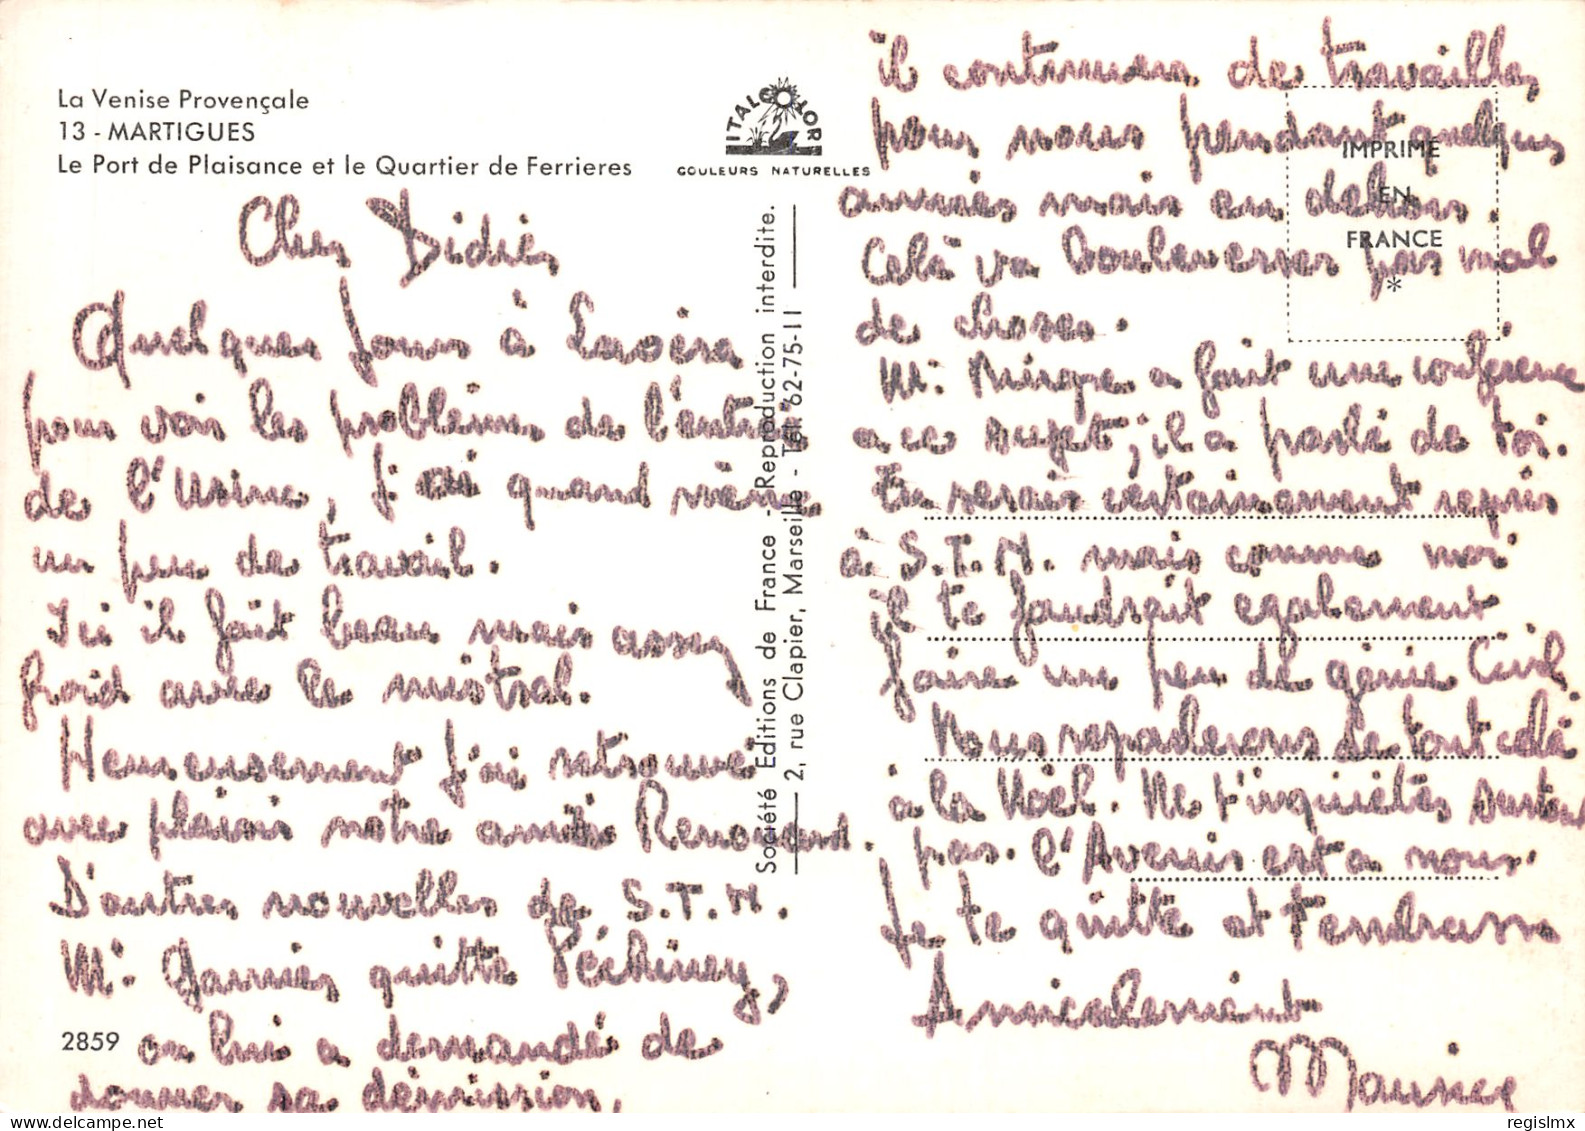 La Venise Provençale
13 - MARTIGUES
Le Port de Plaisance et le Quartier de Ferrieres
ITALCOLOR
COULEURS NATURELLES
Cher Didier
Quelques jours à Lavéra
pour voir les problèmes de l'entrée
de l'Usine, j'ai quand même
un peu de travail.
Ici il fait beau mais assez
froid avec le mistral.
Heureusement j'ai retrouvé
avec plaisir notre amie Renouard.
D'autres nouvelles de S.T.M.
Mr Garnier quitte Péchiney,
on lui a demandé de
donner sa démission,
2859
Société Editions de France - Reproduction interdite.
2, rue Clapier, Marseille - Tél. 62-75-11
IMPRIMÉ
EN
FRANCE
*
il continuera de travailler
pour nous pendant quelques
années mais en dehors.
Celà va bouleverser pas mal
de choses.
Mr a fait une conférence
a ce sujet; il a parlé de toi.
Tu serais certainement repris
à S.T.M. mais comme moi
il te faudrait également
faire un peu de génie Civil
Nous reparlerons de tout celà
à la Noël. Ne t'inquiètes surtout
pas. l'Avenir est a nous.
Je te quitte et t'embrasse
Amicalement
Maurice
regislmx